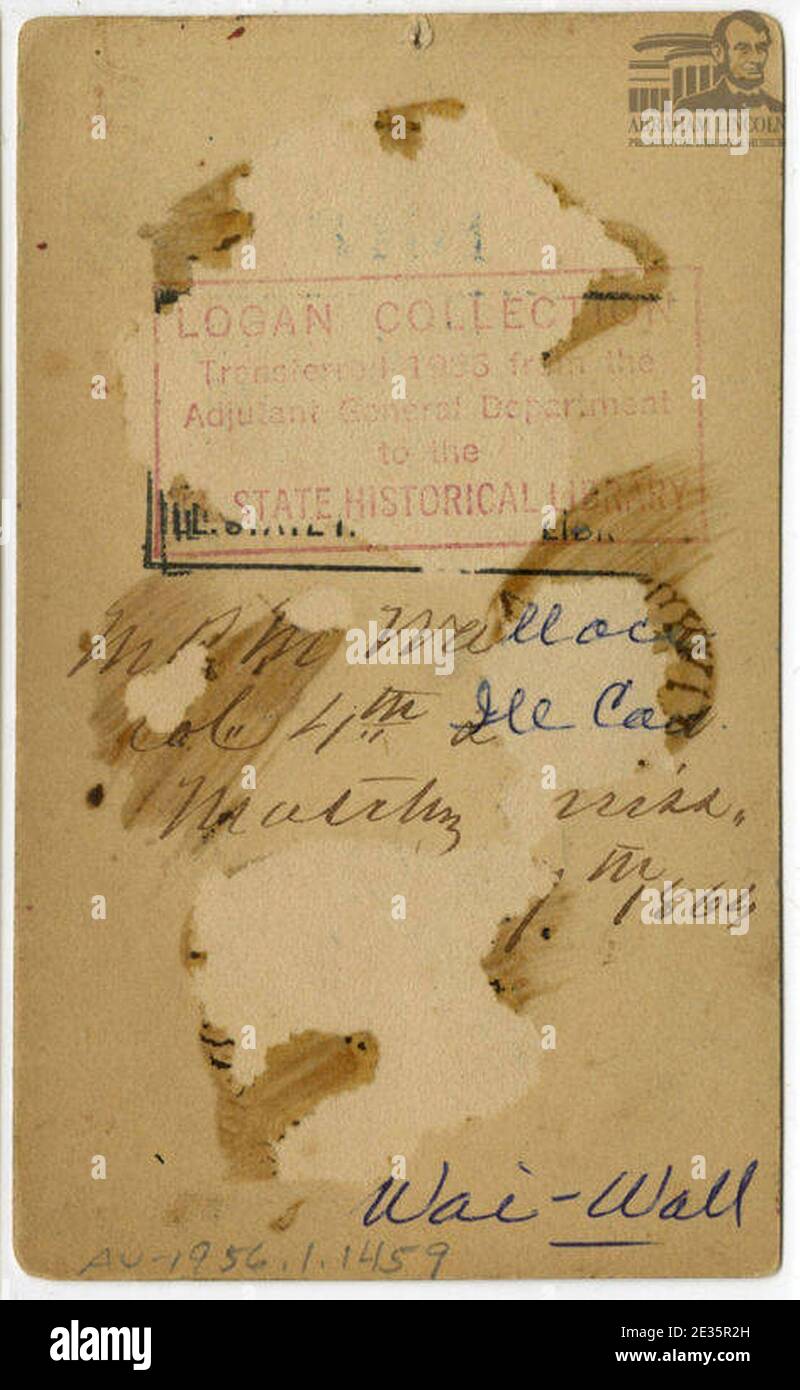 ABRAHAM LINCOLN
LOGAN COLLECTION
Transferred 1955 from the
Adjutant General Department
to the
STATE HISTORICAL LIBRARY
M R M Wallace
Col 4th Ill Cav.
Miss.
th 1864
Wai-Wall
AV-1956.1.1459
alamy
Image ID: 2E35R2H
www.alamy.com